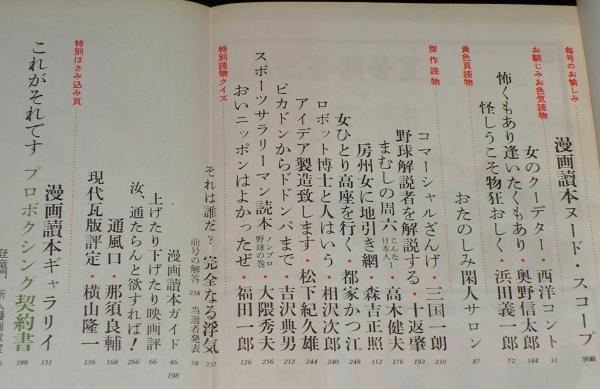 毎号のお愉しみ
漫画讀本ヌード・スコープ 別刷
お馴じみお色気読物
女のクーデター・西洋コント 31
怖くもあり逢いたくもあり・奥野信太郎 144
怪しうこそ物狂おしく・浜田義一郎 72
黄色頁読物
おたのしみ閑人サロン 87
傑作読物
コマーシャルざんげ・三国一朗 210
野球解説者を解説する・十返肇 212
まむしの周六 こんな日本人―1・高木健夫 176
房州女に地引き網・森吉正照 112
女ひとり高座を行く・都家かつ江 248
ロボット博士と人はいう・相沢次郎 240
アイデア製造致します・松下紀久雄 244
ピカドンからドドンパまで・吉沢典男 212
スポーツサラリーマン読本 ノンプロ野球の巻・大隈秀夫 256
おいニッポンはよかったぜ・福田一郎 126
特別読物クイズ
それは誰だ?・完全なる浮気 232
前号の解答 238 当選者発表 78
漫画讀本ガイド 198
上げたり下げたり映画評 46
汝、通たらんと欲すれば! 66
通風口・那須良輔 168
現代瓦版評定・横山隆一 136
特別はさみ込み頁
漫画讀本ギャラリイ 151
これがそれです プロボクシング契約書 199